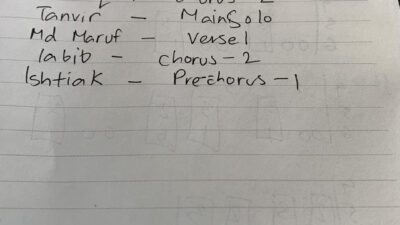 Tanvir - Main Solo
Md Maruf - Verse 1
labib - chorus - 2
Ishtiak - Prechorus - 1